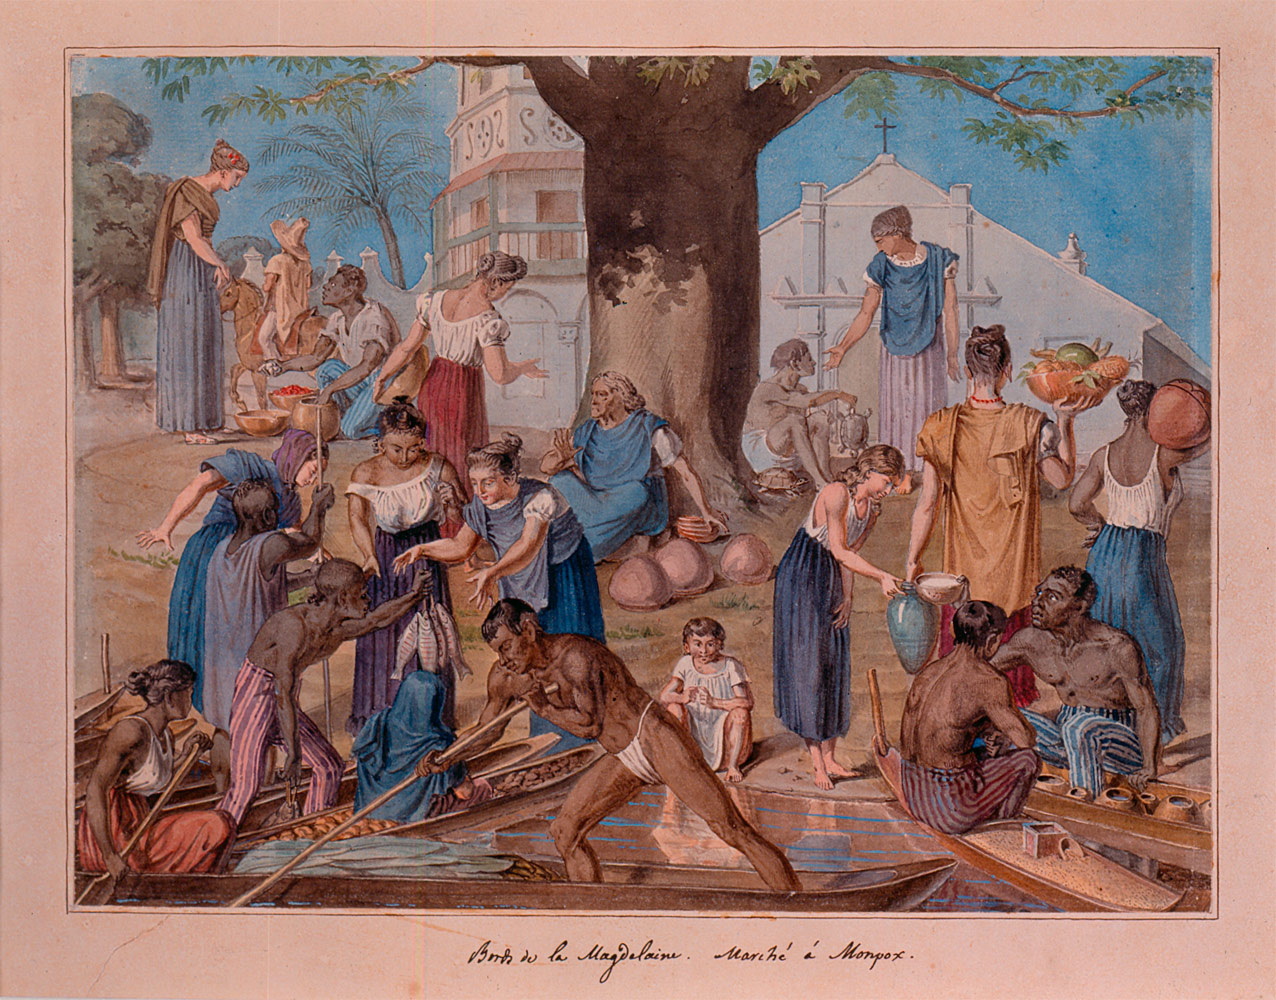 Bords de la Magdelaine. Marché á Monpox.